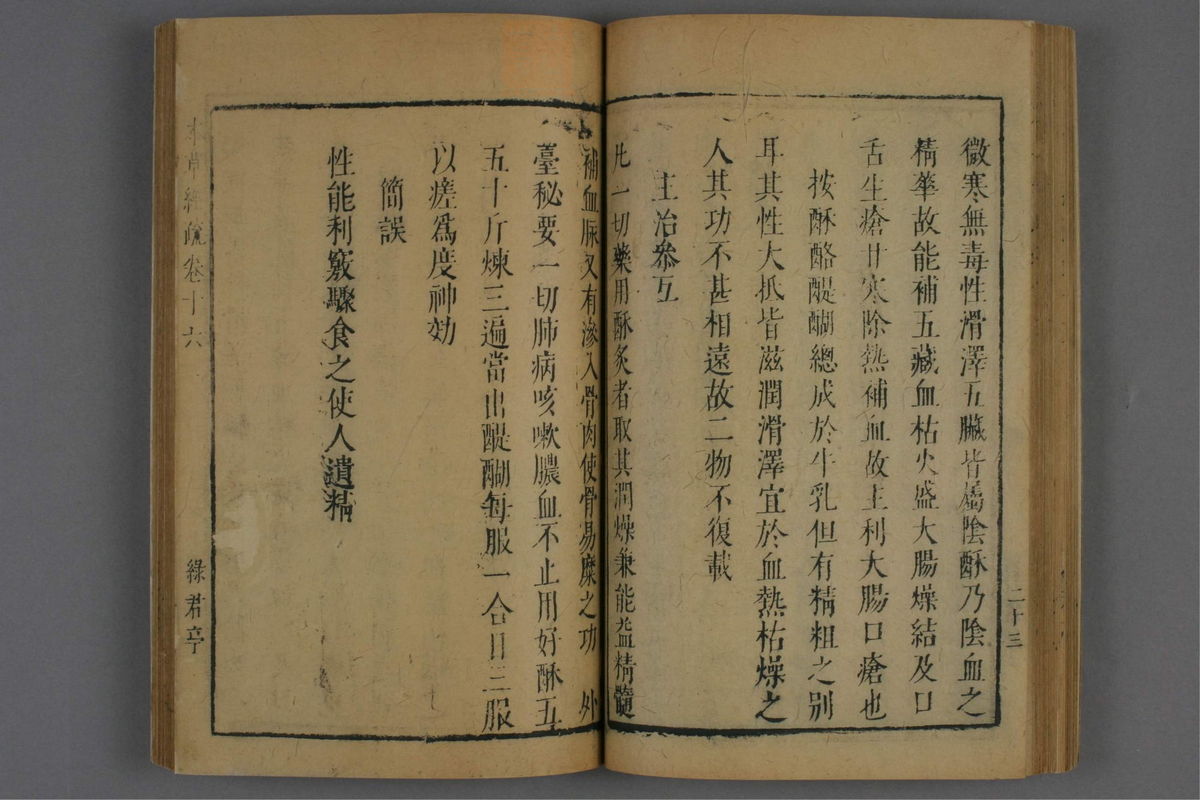 微寒無毒性滑澤五臟皆屬陰酥乃陰血之
精華故能補五藏血枯火盛大腸燥結及口
舌生瘡甘寒除熱補血故主利大腸口瘡也
按酥酪醍醐總成於牛乳但有精粗之別
耳其性大抵皆滋潤滑澤宜於血熱枯燥之
人其功不甚相遠故二物不復載
主治叅互
凡一切藥用酥炙者取其潤燥兼能益精髓
二十三
補血脉又有滲入骨肉使骨易糜之功 外
臺秘要一切肺病咳嗽膿血不止用好酥五
五十斤煉三遍當出醍醐每服一合日三服
以瘥爲度神効
簡誤
性能利竅驟食之使人遺精
本草經疏卷十六
綠君亭